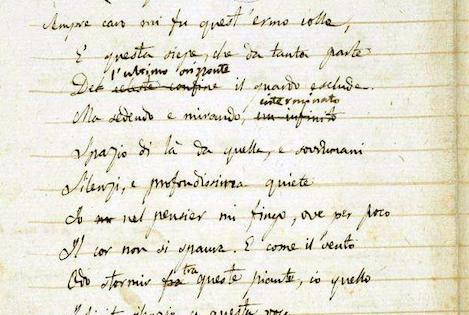 Sempre caro mi fu quest'ermo colle,
E questa siepe, che da tanta parte
l'ultimo orizzonte
De celeste confine il guardo esclude.
interminato
Ma sedendo e mirando, un infinito
Spazio di là da quella, e sovrumani
Silenzi, e profondissima quiete
Io nel pensier mi fingo, ove per poco
Il cor non si spaura. E come il vento
tra
Odo stormir fra queste piante, io quello
Infinito silenzio a questa voce